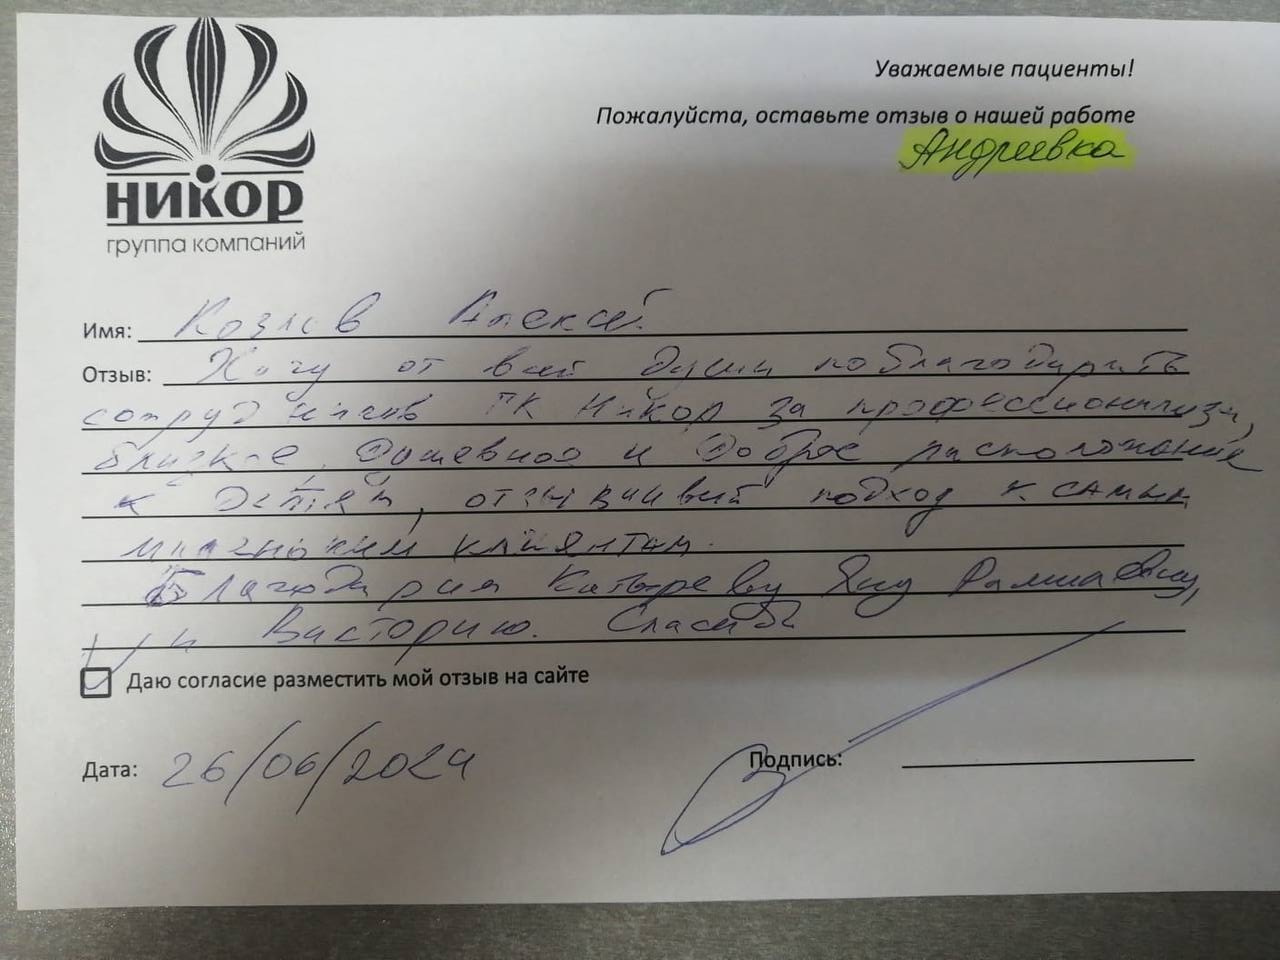 НИКОР
группа компаний
Уважаемые пациенты!
Пожалуйста, оставьте отзыв о нашей работе
Андреевка
Имя: Козлов Алексей
Отзыв: Хочу от всей души поблагодарить
сотрудников ГК Никор за профессионализм,
близкое, Душевное и Доброе расположение
к Детям, отзывчивый подход к самым
маленьким клиентам.
Благодарим Яну
и Викторию. Спасибо
Даю согласие разместить мой отзыв на сайте
Дата: 26/06/2024
Подпись: